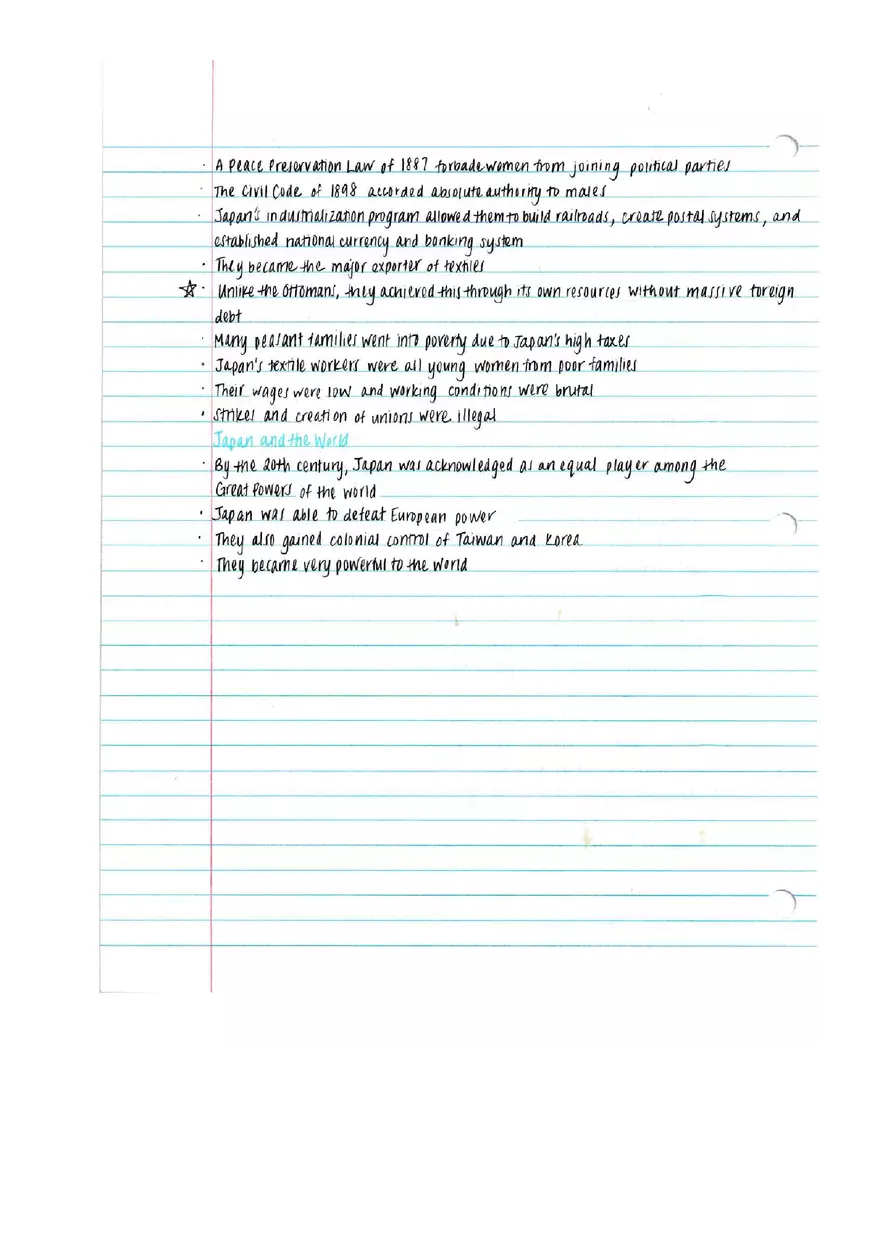 · A Peace Preservation Law of 1887 forbade women from joining political parties
· The Civil Code of 1898 accorded absolute authority to males
· Japan's industrialization program allowed them to build railroads, create postal systems, and
established national currency and banking system
· They became the major exporter of textiles
☆· Unlike the Ottomans, they achieved this through its own resources without massive foreign
debt
· Many peasant families went into poverty due to Japan's high taxes
· Japan's textile workers were all young women from poor families
· Their wages were low and working conditions were brutal
· Strikes and creation of unions were illegal
Japan and the World
· By the 20th century, Japan was acknowledged as an equal player among the
Great Powers of the world
· Japan was able to defeat European power
· They also gained colonial control of Taiwan and Korea
· They became very powerful to the world